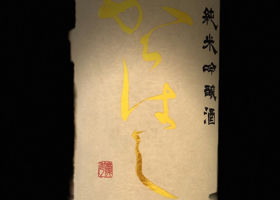 純米吟醸酒
からはし